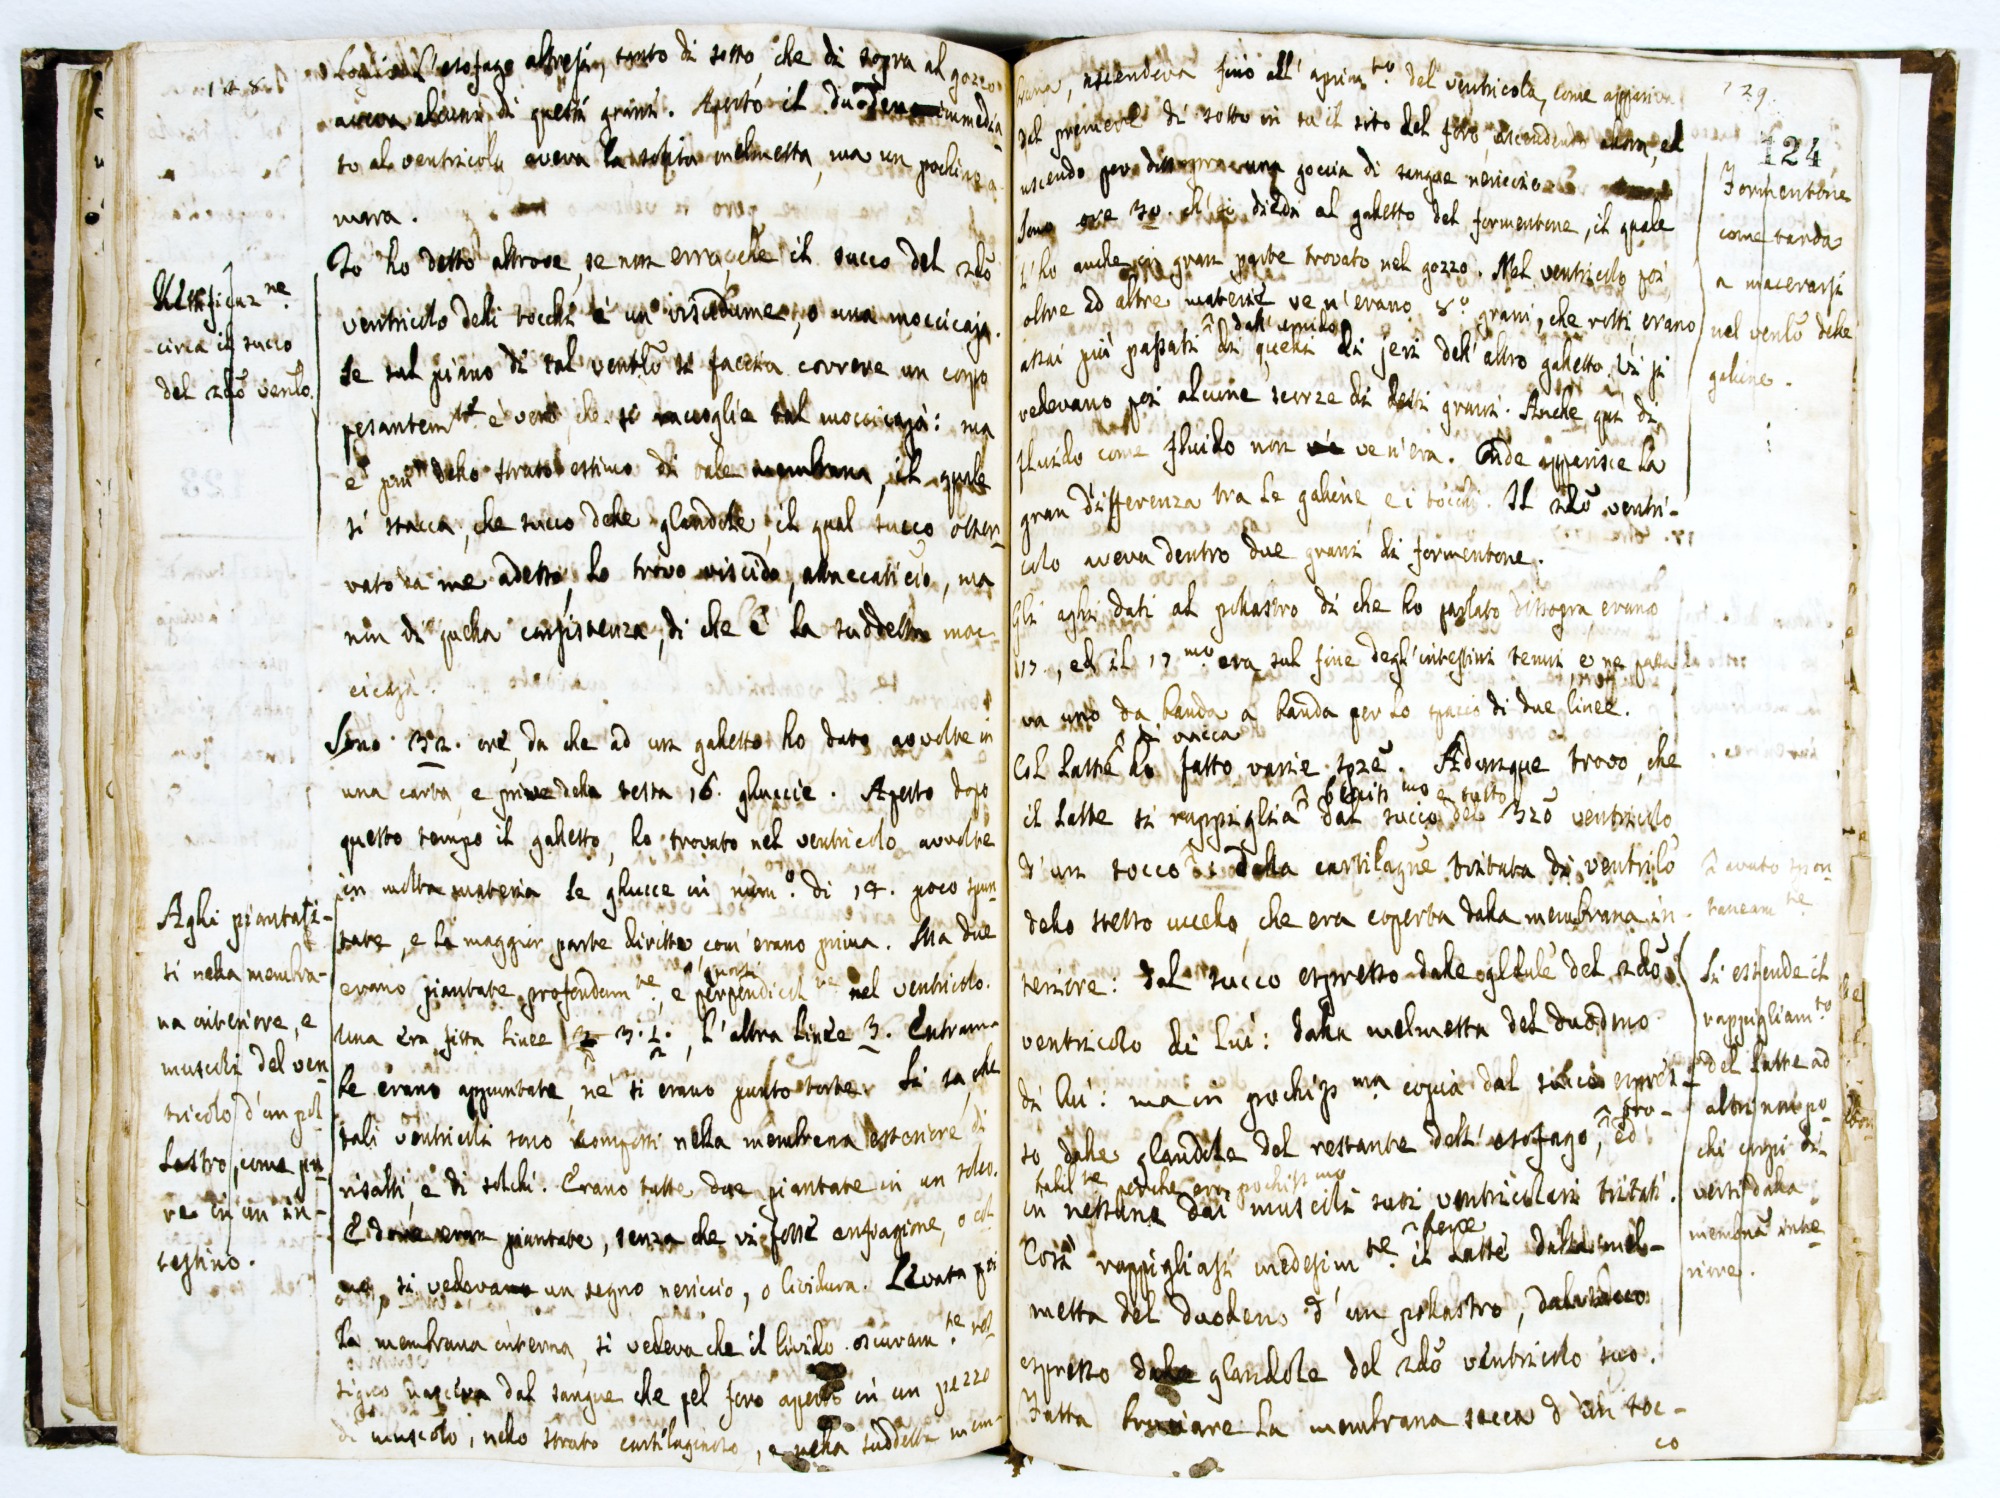 128.
L'esofago altresì, tanto di sotto, che di sopra al gozzo
aveva alcuni di questi grani. Aperto il duodeno immedia-
to al ventricolo aveva la solita melmetta, ma un pochino a-
mara.
Io ho detto altrove, se non erro, che il succo del 2do
ventricolo delli tocchi è un viscidume, o una moccicaja.
Se sul piano di tal ventlo si faccia correre un corpo
pesantemte è vero, che si raccoglie tal moccicaja: ma
è più dello strato estimo di tale membrana, il quale
si stacca, che succo delle glandole, il qual succo osser-
vato da me adesso, lo trovo viscido, attaccaticcio, ma
non di quella consistenza, di che è la suddetta moc-
cicaja.
Rettificazne
circa il succo
del 2do ventlo.
Sono 32. ore, da che ad un galletto ho dato avvolte in
una carta, e prive della testa 16. gluccie. Aperto dopo
questo tempo il galletto, ho trovato nel ventricolo avvolte
in molta materia le glucce in numo. di 14. poco spun-
tate, e la maggior parte diritte, com'erano prima. Ma due
erano piantate profondamte, e quasi perpendicolte nel ventricolo.
Una era fitta linee 3. 1/2., l'altra linee 3. Entram-
be erano appuntate, né si erano punto torte. Si sa, che
tali ventricoli sono composti nella membrana esteriore di
risalti, e di solchi. Erano tutte due piantate in un solco.
E dove eran piantate, senza che vi fosse enfiagione, o al-
tre, si vedeva un segno nericcio, o lividura. Levata poi
la membrana interna, si vedeva che il livido oscuramte ros-
signo nasceva dal sangue che pel foro aperto in un pezzo
di muscolo, nello strato cartilaginoso, e nella suddetta mem-
Aghi piantati-
si nella membra-
na interiore, e
muscoli del ven-
tricolo d'un pol-
lastro, come pu-
re in un in-
testino.
129.
124
brana, ascendeva fino all'aprimto. del ventricolo, come appariva
del premere di sotto in su il sito del foro, ascendendo allora, ed
uscendo per dissopra una goccia di sangue nericcio.
Sono ore 30. ch'io diedi al galletto del formentone, il quale
l'ho anche in gran parte trovato nel gozzo. Nel ventricolo poi,
oltre ad altre materie ve n'erano 8o. grani, che rotti erano
assai più passati dall'umido di quelli di jeri dell'altro galletto. Vi si
vedevano poi alcune scorze di detti grani. Anche qui di
fluido come fluido non ve n'era. Onde apparisce la
gran differenza tra le galline, e i tocchi. Il 2do ventri-
colo aveva dentro due grani di formentone.
Formentone
come tarda
a macerarsi
nel ventlo delle
galline.
Gli aghi dati al pollastro di che ho parlato dissopra, erano
17, ed il 17mo. era sul fine degl'intestini tenui, e ne passa-
va uno da banda a banda per lo spazio di due linee.
Col latte di vacca ho fatto varie spze. Adunque trovo, che
il latte si rappiglia benissmo e tutto dal succo del 2do ventricolo
d'un tocco: dalla cartilagine tritata di ventrilo
dello stesso uccello, che era coperta dalla membrana in-
teriore: dal succo espresso dalle gldule del 2do
ventricolo di lui: dalla melmetta del duodeno
di lui: ma in pochissma copia dal succo espres-
so dalle glandole del restante dell'esofago, ed pro-
babilte perché era pochissmo
in nessuna dai muscoli suoi ventricolari tritati.
Così rappigliasi medesimte. il latte dalla mel-
metta del duodeno d'un pollastro, dal succo
espresso dalle glandole del 2do ventricolo suo.
Fatta bruciare la membrana secca d'un toc-
co
avuto spon-
taneamte
Si estende il
rappigliamto
del latte ad
altri non po-
chi corpi di-
versi dalla
membna inte-
riore.